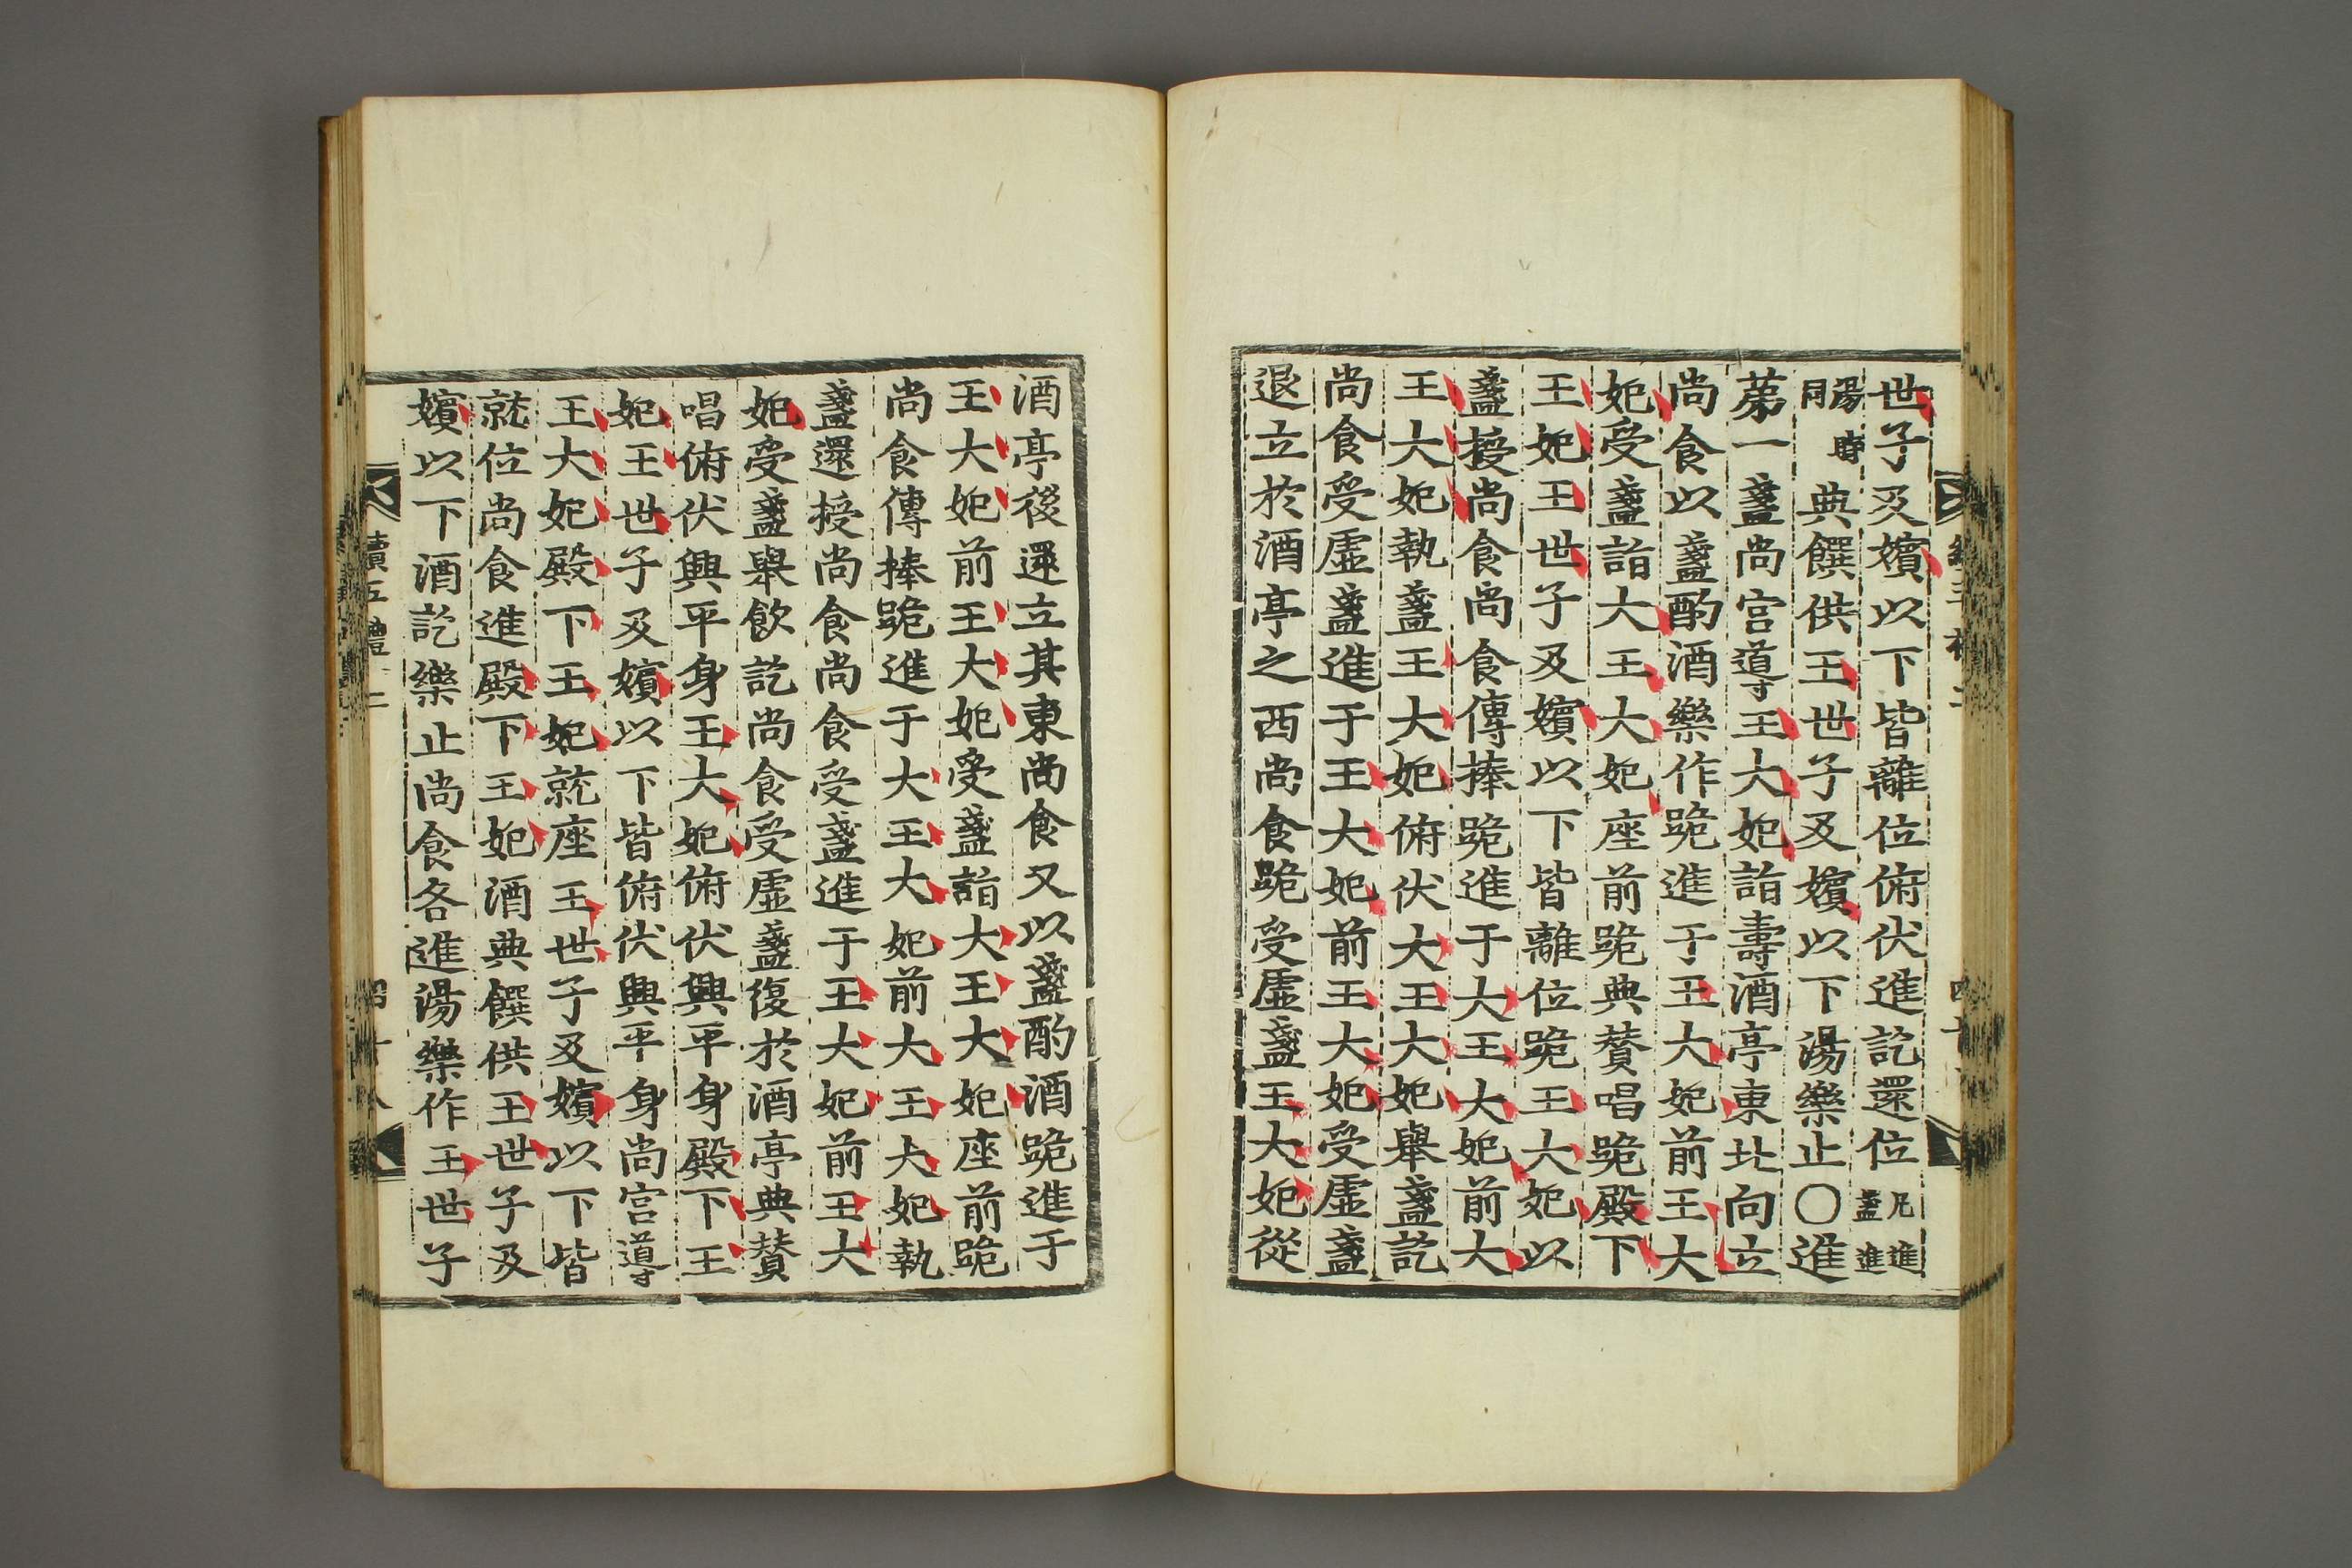 世子及嬪以下皆離位俯伏進訖還位凡進盞進
湯時同典饌供王世子及嬪以下湯樂止○進
苐一盞尚宫導王大妃詣壽酒亭東北向立
尚食以盞酌酒樂作跪進于王大妃前王大
妃受盞詣大王大妃座前跪典賛唱跪殿下
王妃王世子及嬪以下皆離位跪王大妃以
盞授尚食尚食傳捧跪進于大王大妃前大
王大妃執盞王大妃俯伏大王大妃舉盞訖
尚食受虛盞進于王大妃前王大妃受虛盞
退立於酒亭之西尚食跪受虛盞王大妃從
酒亭後還立其東尚食又以盞酌酒跪進于
王大妃前王大妃受盞詣大王大妃座前跪
尚食傳捧跪進于大王大妃前大王大妃執
盞還授尚食尚食受盞進于王大妃前王大
妃受盞舉飲訖尚食受虛盞復於酒亭典賛
唱俯伏興平身王大妃俯伏興平身殿下王
妃王世子及嬪以下皆俯伏興平身尚宫導
王大妃殿下王妃就座王世子及嬪以下皆
就位尚食進殿下王妃酒典饌供王世子及
嬪以下酒訖樂止尚食各進湯樂作王世子
續五禮 二